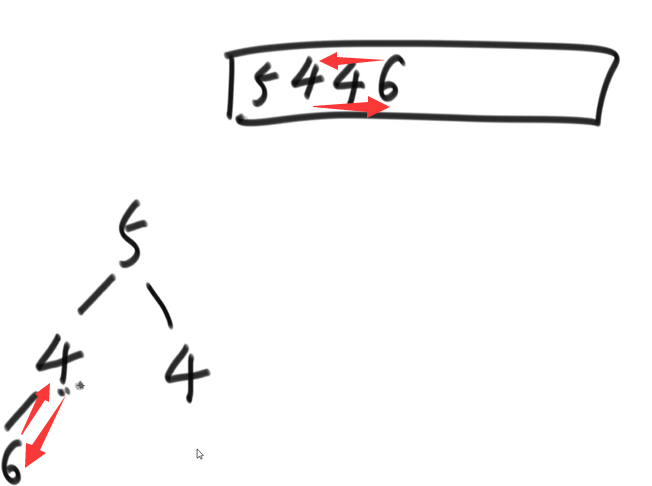 5 4 4 6
5
4 4
6